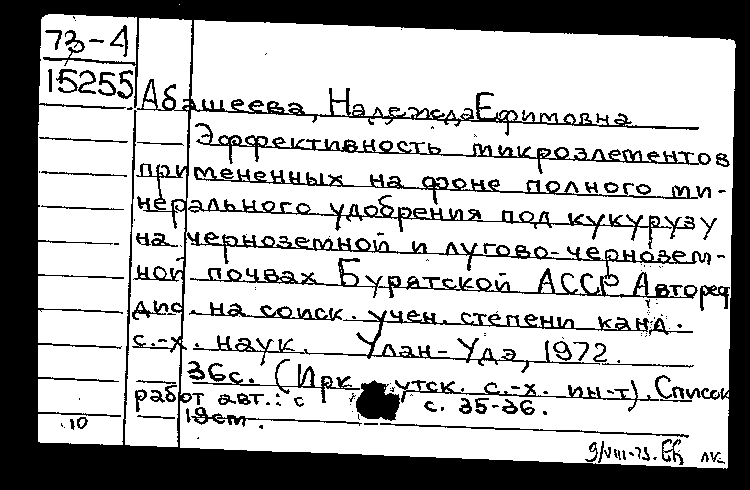 73-4
15255
Абашеева, Надежда Ефимовна
Эффективность микроэлементов
примененных на фоне полного ми-
нерального удобрения под кукурузу
на черноземной и лугово-чернозем-
ной почвах Бурятской АССР. Автореф
дис. на соиск. учен. степени канд.
с.-х. наук. Улан-Удэ, 1972.
36с. (Ирк утск. с.-х. ин-т). Список
работ авт.: с с. 35-36.
19
10
9/VIII-73.